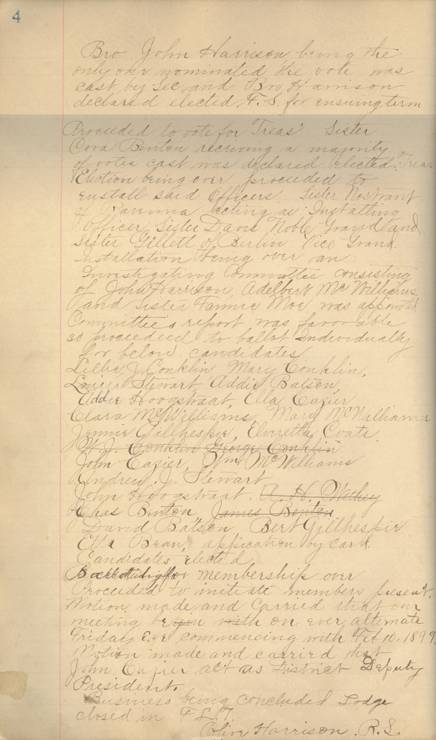 4
Bro John Harrison being the
only one nominated the vote was
cast by Sec and Bro Harrison
declared elected F.S for ensuing term
Proceeded to vote for Treas Sister
Cora Benton receiving a majority
of votes cast was declared elected Treas
Election being over proceeded to
enstall said Officers Sister
of acting as Installing
Officer, Sister Davis Noble Grand and
Sister Gillett of Berlin Vice Grand
Installation being over an
Investigating Committee consisting
of John Harrison, Adelbert McWilliams
and Sister Fannie Moe was appointed
Committees report was favorable
so proceeded to ballot individually
for below candidates
Lillie J. Conklin, Mary Conklin,
Louisa Stewart Addie Batson,
Addie Hoogstraat, Ella Cazier
Clara McWilliams, Mary McWilliams
Jennie Gillhespie, Coats
W. J. George Conklin
John Cazier, Wm McWilliams
Andrew J. Stewart
John Hoogstraat. R. H.
Chas Benton James Benton
David Batson, Bert Gillhespie
Etta Bean, application by card
Candidates elected
Balloting for membership over
Proceeded to initiate members present.
Motion made and carried that our
meeting be on every alternate
Friday Eve commencing with Feb 10. 1899
Motion made and carried that
John Cazier act as District Deputy
President.
Business being concluded Lodge
closed in F. L. T.
Olive Harrison, R.S.